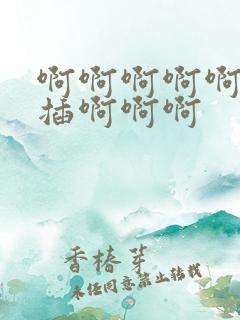 啊啊啊啊啊
插啊啊啊
香椿芽
未经同意禁止转载